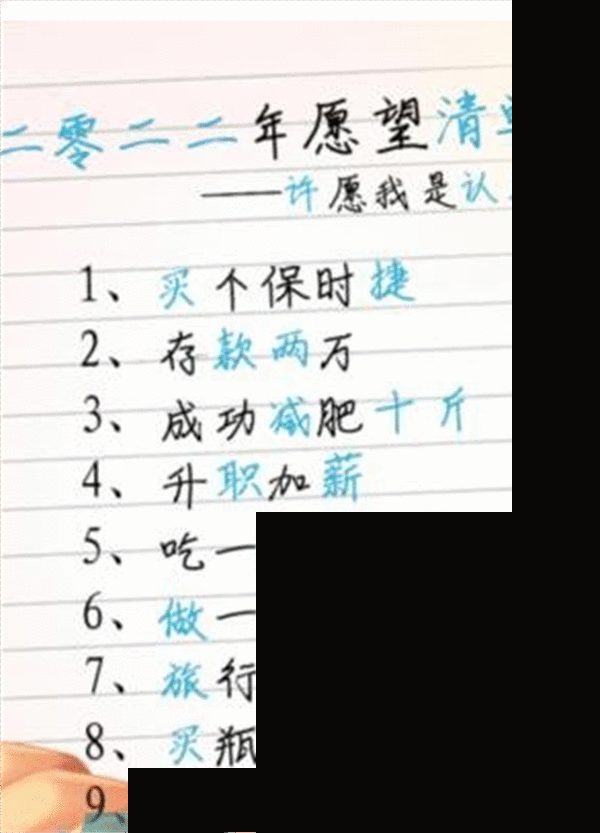 二零二二年愿望清
——许愿我是认
1、买个保时捷
2、存款两万
3、成功减肥十斤
4、升职加薪
5、吃一
6、做一
7、旅行
8、买瓶
9、